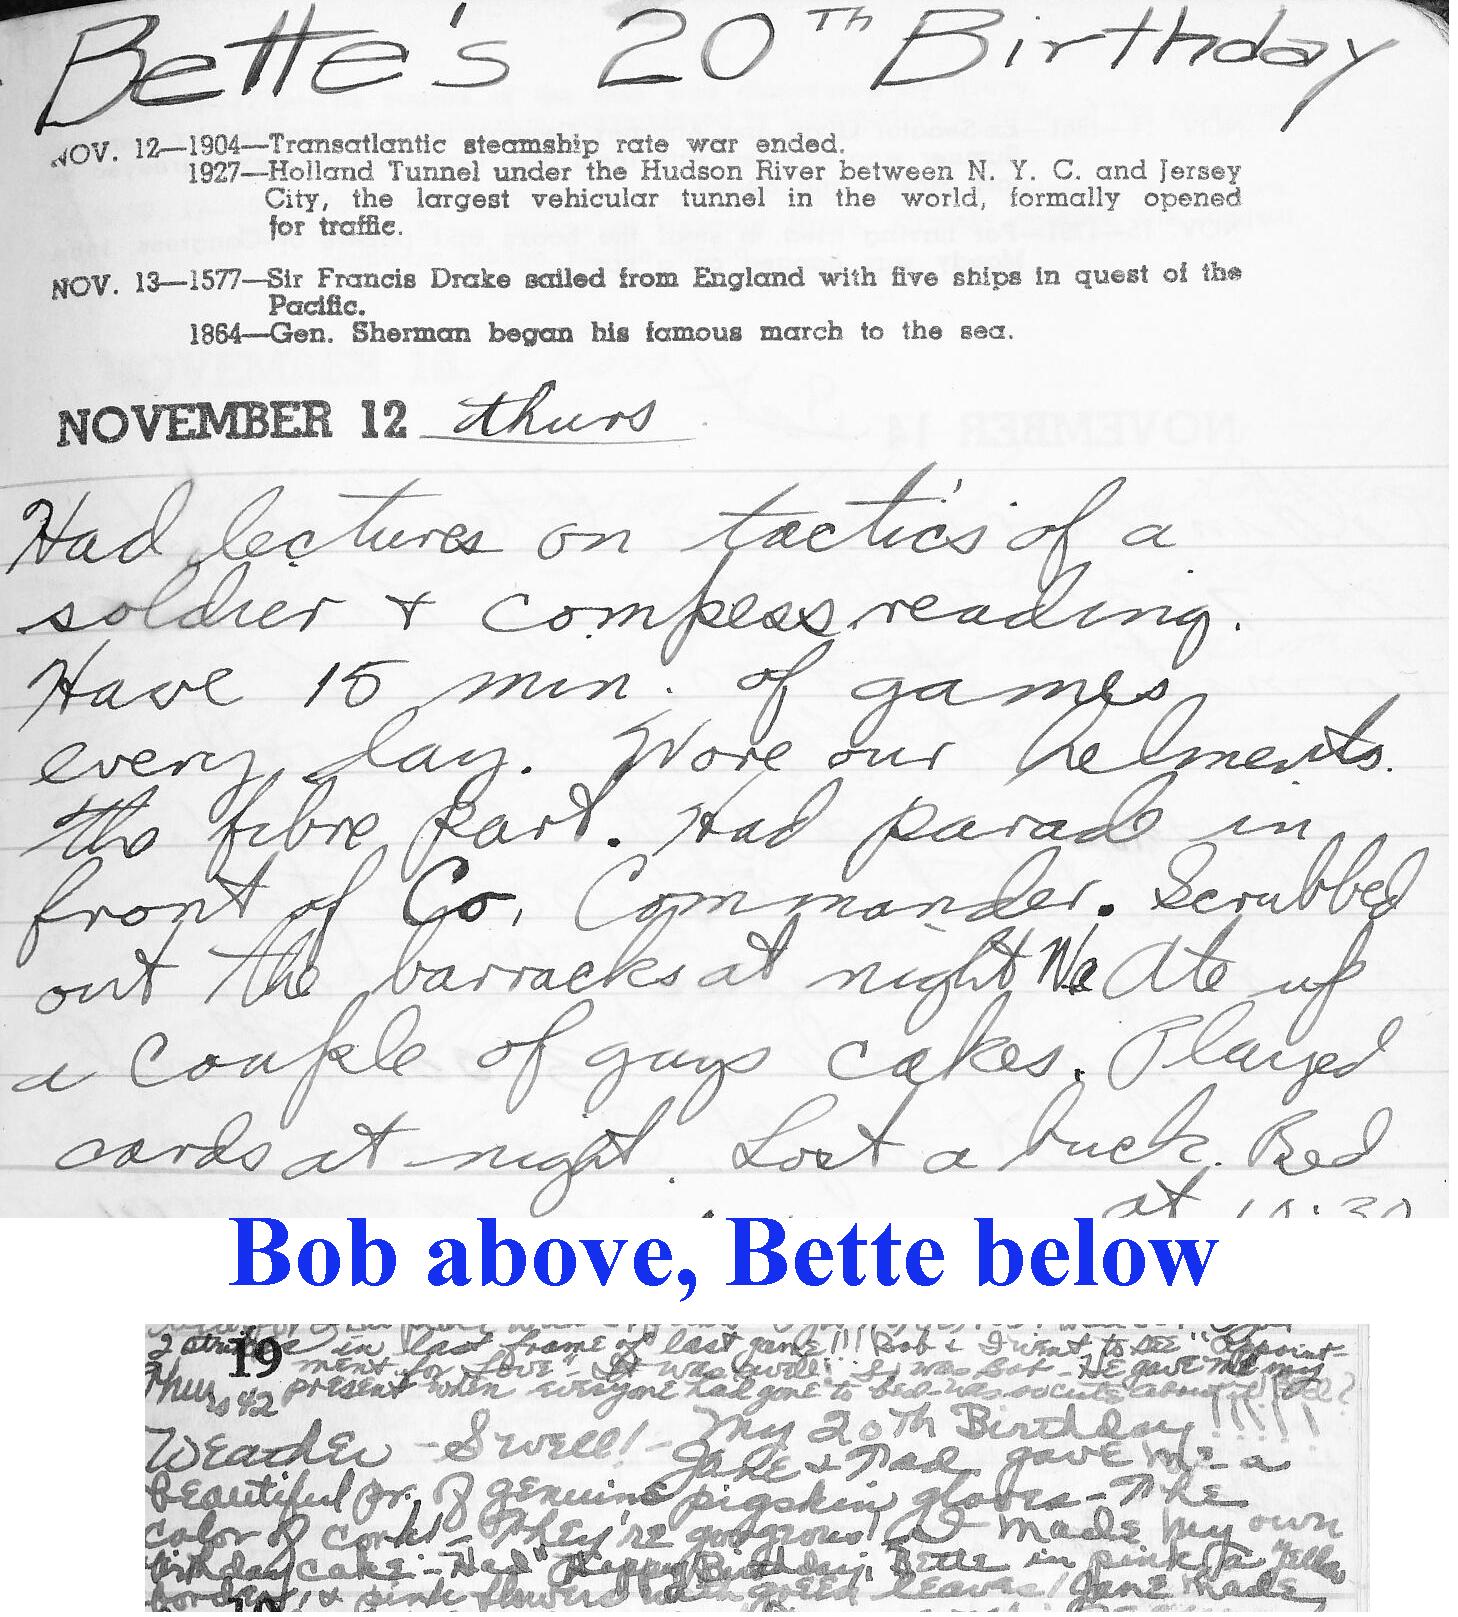 Bette's 20TH Birthday
NOV. 12—1904—Transatlantic steamship rate war ended.
1927—Holland Tunnel under the Hudson River between N. Y. C. and Jersey
City, the largest vehicular tunnel in the world, formally opened
for traffic.
NOV. 13—1577—Sir Francis Drake sailed from England with five ships in quest of the
Pacific.
1864—Gen. Sherman began his famous march to the sea.
NOVEMBER 12 thurs
Had lectures on tactics of a
soldier + compass reading.
Have 15 min. of games
every day. Wore our helments.
The fibre part. Had parade in
front of Co. Commander. Scrubbed
out the barracks at night We Ate up
a couple of guys cakes. Played
cards at night. Lost a buck. Bed
at
Bob above, Bette below
2 strikes in last frame of last game!!! Bob & I went to see "Appoint-
19
ment for Love" - It was swell! - He gave me my
Thurs 42
present when everyone had gone to bed - was so cute about it!
Weather - Swell! - My 20TH Birthday!!!!!
Jane & Dad gave me a
beautiful pr. of genuine pigskin gloves - The
color of cork! - They're gorgeous! I made my own
birthday cake - Had "Happy Birthday, Bette in pink, a yello
border, & pink flowers with green leaves! Jane made